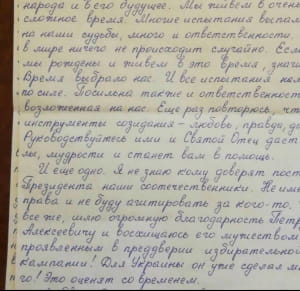 народа и в его будущее. Мы живём в очень
сложное время. Многие испытания выпали
на наши судьбы, много и ответственности.
в мире ничего не происходит случайно. Если
мы рождены и живём в это время, значит
Время выбрало нас. И все испытания нам
по силе. Посильна также и ответственность
возложенная на нас. Ещё раз повторюсь, что
инструменты созидания – любовь, правда, до
Руководствуйтесь ими и Святой Отец даст
лы, мудрости и станет вам в помощь.
И ещё одно. Я не знаю кому доверят пост
Президента наши соотечественники. Не имею
права и не буду агитировать за кого-то. Но
все же, шлю огромную благодарность Петру
Алексеевичу и восхищаюсь его мужеством
проявленным в преддверии избирательной
кампании! Для Украины он уже сделал мно
го! Это оценят со временем.